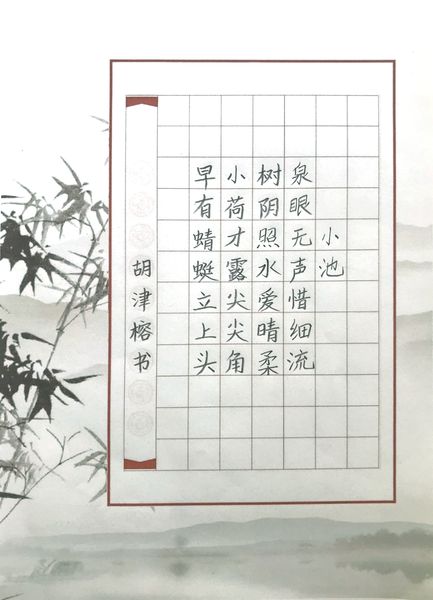 小池
泉眼无声惜细流
树阴照水爱晴柔
小荷才露尖尖角
早有蜻蜓立上头
胡津榕书